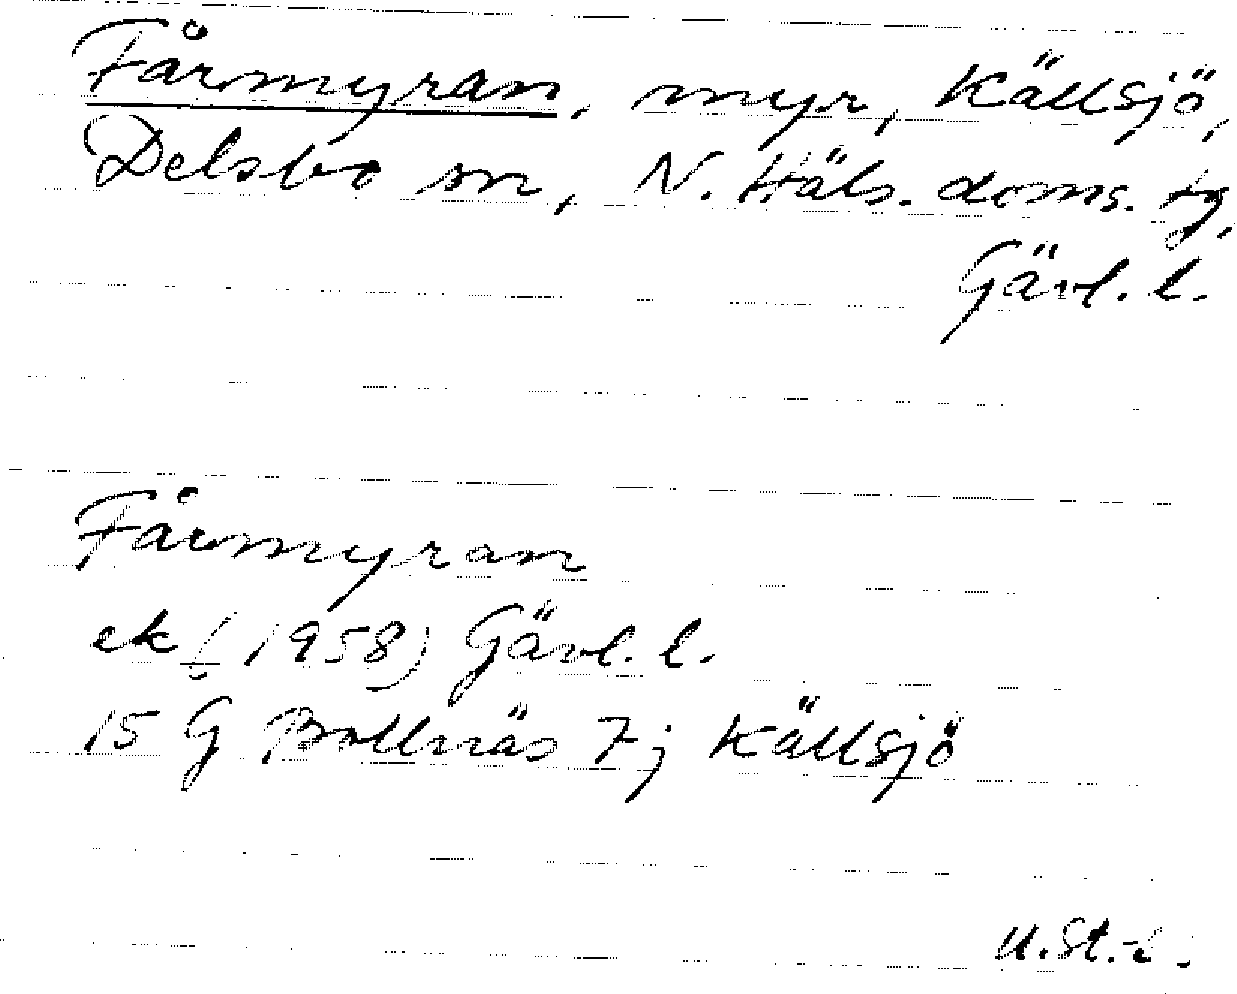 Fårmyran, myr, Källsjö,
Delsbo sn, N. Häls. doms. tg,
Gävl. l.
Fårmyran
ek (1958) Gävl. l.
15 G Bollnäs 7j Källsjö
U.St.-L.